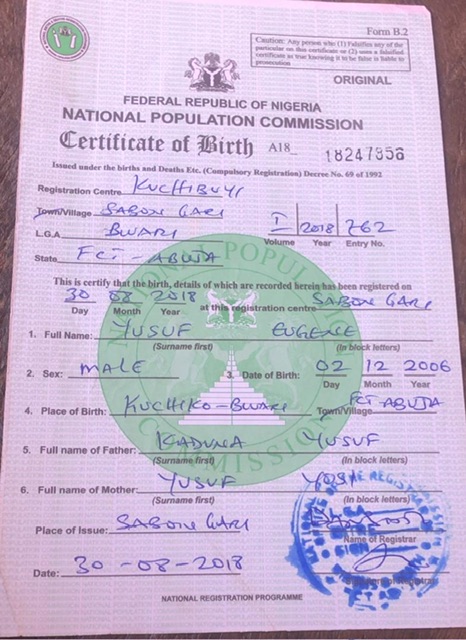 Form B.2
Caution: Any person who (1) Falsifies any of the
particular on this certificate or (2) uses a falsified
certificate as true knowing it to be false is liable to
prosecution
ORIGINAL
FEDERAL REPUBLIC OF NIGERIA
NATIONAL POPULATION COMMISSION
Certificate of Birth A18 18247356
Issued under the births and Deaths Etc. (Compulsory Registration) Decree No. 69 of 1992
Registration Centre KUCHIBUYI
Town/Village SABON GARI
L.G.A BWARI I 2018 762
Volume Year Entry No.
State FCT - ABUJA
This is certify that the birth, details of which are recorded herein has been registered on
30 08 2018 at this registration centre SABON GARI
Day Month Year
1. Full Name: YUSUF EUGENE
(Surname first) (In block letters)
2. Sex: MALE 3. Date of Birth: 02 12 2006
Day Month Year
4. Place of Birth: KUCHIKO-BWARI Town/Village FCT ABUJA
5. Full name of Father: KADUNA YUSUF
(Surname first) (In block letters)
6. Full name of Mother: YUSUF
(Surname first) (In block letters)
Place of Issue: SABON GARI
Name of Registrar
Date: 30-08-2018
NATIONAL REGISTRATION PROGRAMME